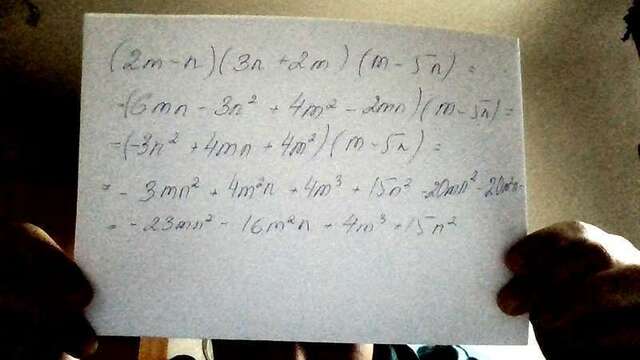 (2m-n)(3n+2m)(m-5n)=
=(6mn-3n²+4m²-2mn)(m-5n)=
=(-3n²+4mn+4m²)(m-5n)=
=-3mn²+4m²n+4m³+15n²-20mn²-20m²n=
=-23mn²-16m²n+4m³+15n²